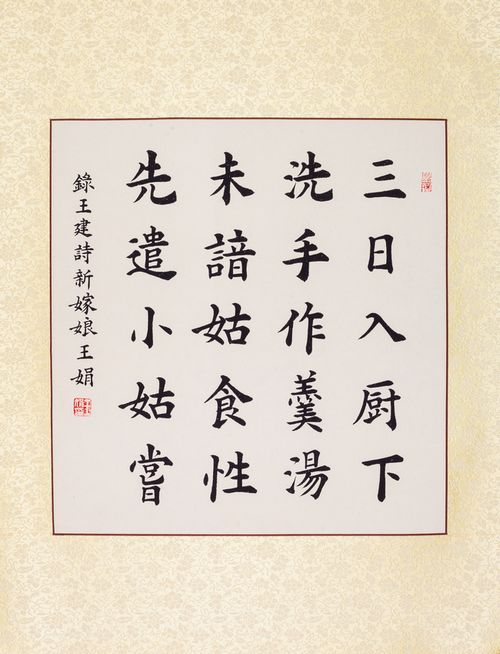 三日入厨下
洗手作羹湯
未諳姑食性
先遣小姑嘗
錄王建詩新嫁娘王娟